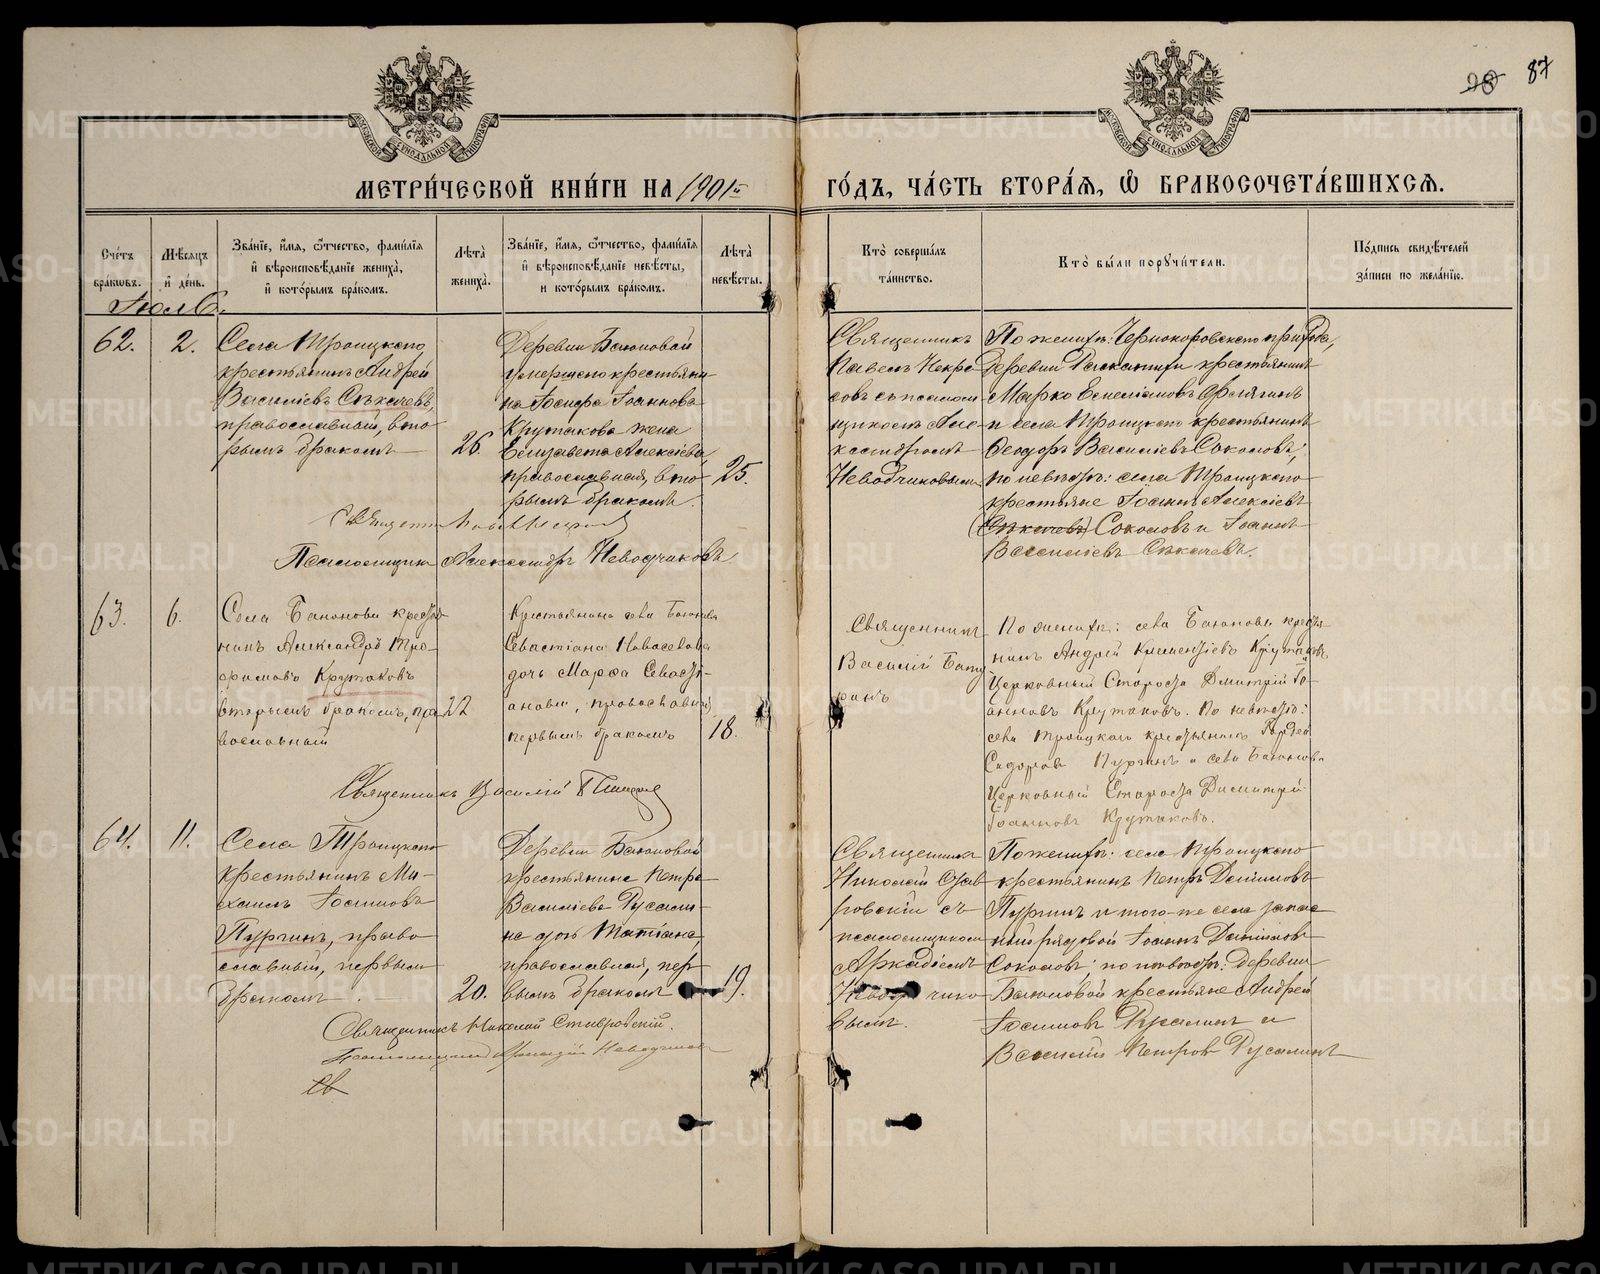 87
МОСКОВСКОЙ СѴНОДАЛЬНОЙ ТИПОГРАФІИ
МОСКОВСКОЙ СѴНОДАЛЬНОЙ ТИПОГРАФІИ
МЕТРИ́ЧЕСКОЙ КНИ́ГИ НА 1901й ГО́ДЪ, ЧА́СТЬ ВТОРА́Ѧ, Ѽ БРАКОСОЧЕТА́ВШИХСѦ.
Сче́тъ
бра́кѡвъ.
Мѣ́сѧцъ
и҆ де́нь.
Зва́нїе, и҆́мѧ, ѻ҆́тчество, фами́лїѧ
и҆ вѣроисповѣ́данїе жениха̀,
и҆ кото́рымъ бра́комъ.
Лѣ́та̀
жениха̀.
Зва́нїе, и҆́мѧ, ѻ҆́тчество, фами́лїѧ
и҆ вѣроисповѣ́данїе невѣ́сты,
и кото́рымъ бра́комъ.
Лѣ́та̀
невѣ́сты.
Кто̀ соверша́лъ
та́инство.
Кто̀ бы́ли порꙋчи́тели.
По́дпись свидѣ́телей
за́писи по жела́нїю.
Іюль.
62.
2.
Села Троицкаго
крестьянинъ Андрей
Василіевъ Секачевъ,
православный, вто-
рымъ бракомъ
26.
Деревни Баюновой
умершаго крестьяни-
на Іосифа Іоаннова
Крутакова жена
Елизавета Алексіева,
православная, вто-
рымъ бракомъ.
25.
Священникъ
Павелъ Некра-
совъ съ псалом-
щикомъ Але-
ксандромъ
Неводчиковымъ
По женихѣ: Чернокоровскаго прихода,
Деревни Раскатихи крестьянинъ
Марко Емеліановъ
и села Троицкаго крестьянинъ
Ѳеодоръ Василіевъ Соколовъ;
по невѣстѣ: села Троицкаго
крестьяне Іоаннъ Алексіевъ
(Секачевъ) Соколовъ и Іоаннъ
Василіевъ Секачевъ.
Священникъ Павелъ Некрасовъ
Псаломщикъ Александръ Неводчиковъ
63.
6.
Села Баюнова крестья-
нинъ Александръ Тро-
фимовъ Крутаковъ
вторымъ бракомъ, пра-
вославный
22
Крестьянина села Баюнова
Севастіана Новоселова
дочь Марѳа Севасті-
анова, православная,
первымъ бракомъ
18.
Священникъ
Василій
По женихѣ: села Баюнова кресть-
нинъ Андрей Климентіевъ Крутаковъ
Церковный Староста Димитрій Іо-
анновъ Крутаковъ. По невѣстѣ:
села Троицкаго крестьянинъ
Сидоровъ Пургинъ и села Баюнова
Церковный Староста Димитрій
Іоанновъ Крутаковъ.
Священникъ Василій
64.
11.
Села Троицкаго
крестьянинъ Ми-
хаилъ Іоанновъ
Пургинъ, право-
славный, первымъ
бракомъ
20.
Деревни Баюновой
крестьянина Петра
Василіева Русали-
на дочь Татіана,
православная, пер-
вымъ бракомъ
19.
Священникъ
Николай Став-
ровскій съ
псаломщикомъ
Аркадіемъ
Неводчико-
вымъ.
По женихѣ: села Троицкаго
крестьянинъ Петръ Даниловъ
Пургинъ и того-же села запас-
ный рядовой Іоаннъ Даниловъ
Соколовъ; по невѣстѣ: деревни
Баюновой крестьяне Андрей
Іоанновъ и
Василій Петровъ Русалинъ
Священникъ Николай Ставровскій.
Псаломщикъ Аркадій Неводчиковъ
Св
METRIKI.GASO-URAL.RU